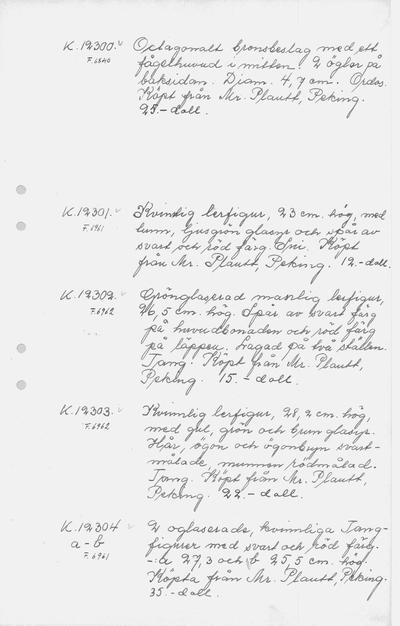 K.12300. Octagonalt bronsbeslag med ett
F.6840 fågelhuvud i mitten. 2 öglor på
baksidan. Diam. 4,7 cm. Ordos.
Köpt från Mr. Plautt, Peking.
25.- doll.
K.12301. Kvinnlig lerfigur, 23 cm. hög, med
F.6961 tunn, ljusgrön glasyr och spår av
svart och röd färg. Sui. Köpt
från Mr. Plautt, Peking. 12.- doll.
K.12302. Grönglaserad manlig lerfigur,
F.6962 26,5 cm. hög. Spår av svart färg
på huvudbonaden och röd färg
på läppen. Lagad på två ställen.
Tang. Köpt från Mr. Plautt,
Peking. 15.- doll.
K.12303. Kvinnlig lerfigur, 28,2 cm. hög,
F.6962 med gul, grön och brun glasyr.
Hår, ögon och ögonbryn svart-
målade, munnen rödmålad.
Tang. Köpt från Mr. Plautt,
Peking. 22.- doll.
K.12304 2 oglaserade, kvinnliga Tang-
a-b figurer med svart och röd färg.
F.6961 -: a 27,3 och b 25,5 cm. hög.
Köpta från Mr. Plautt, Peking.
35.- doll.